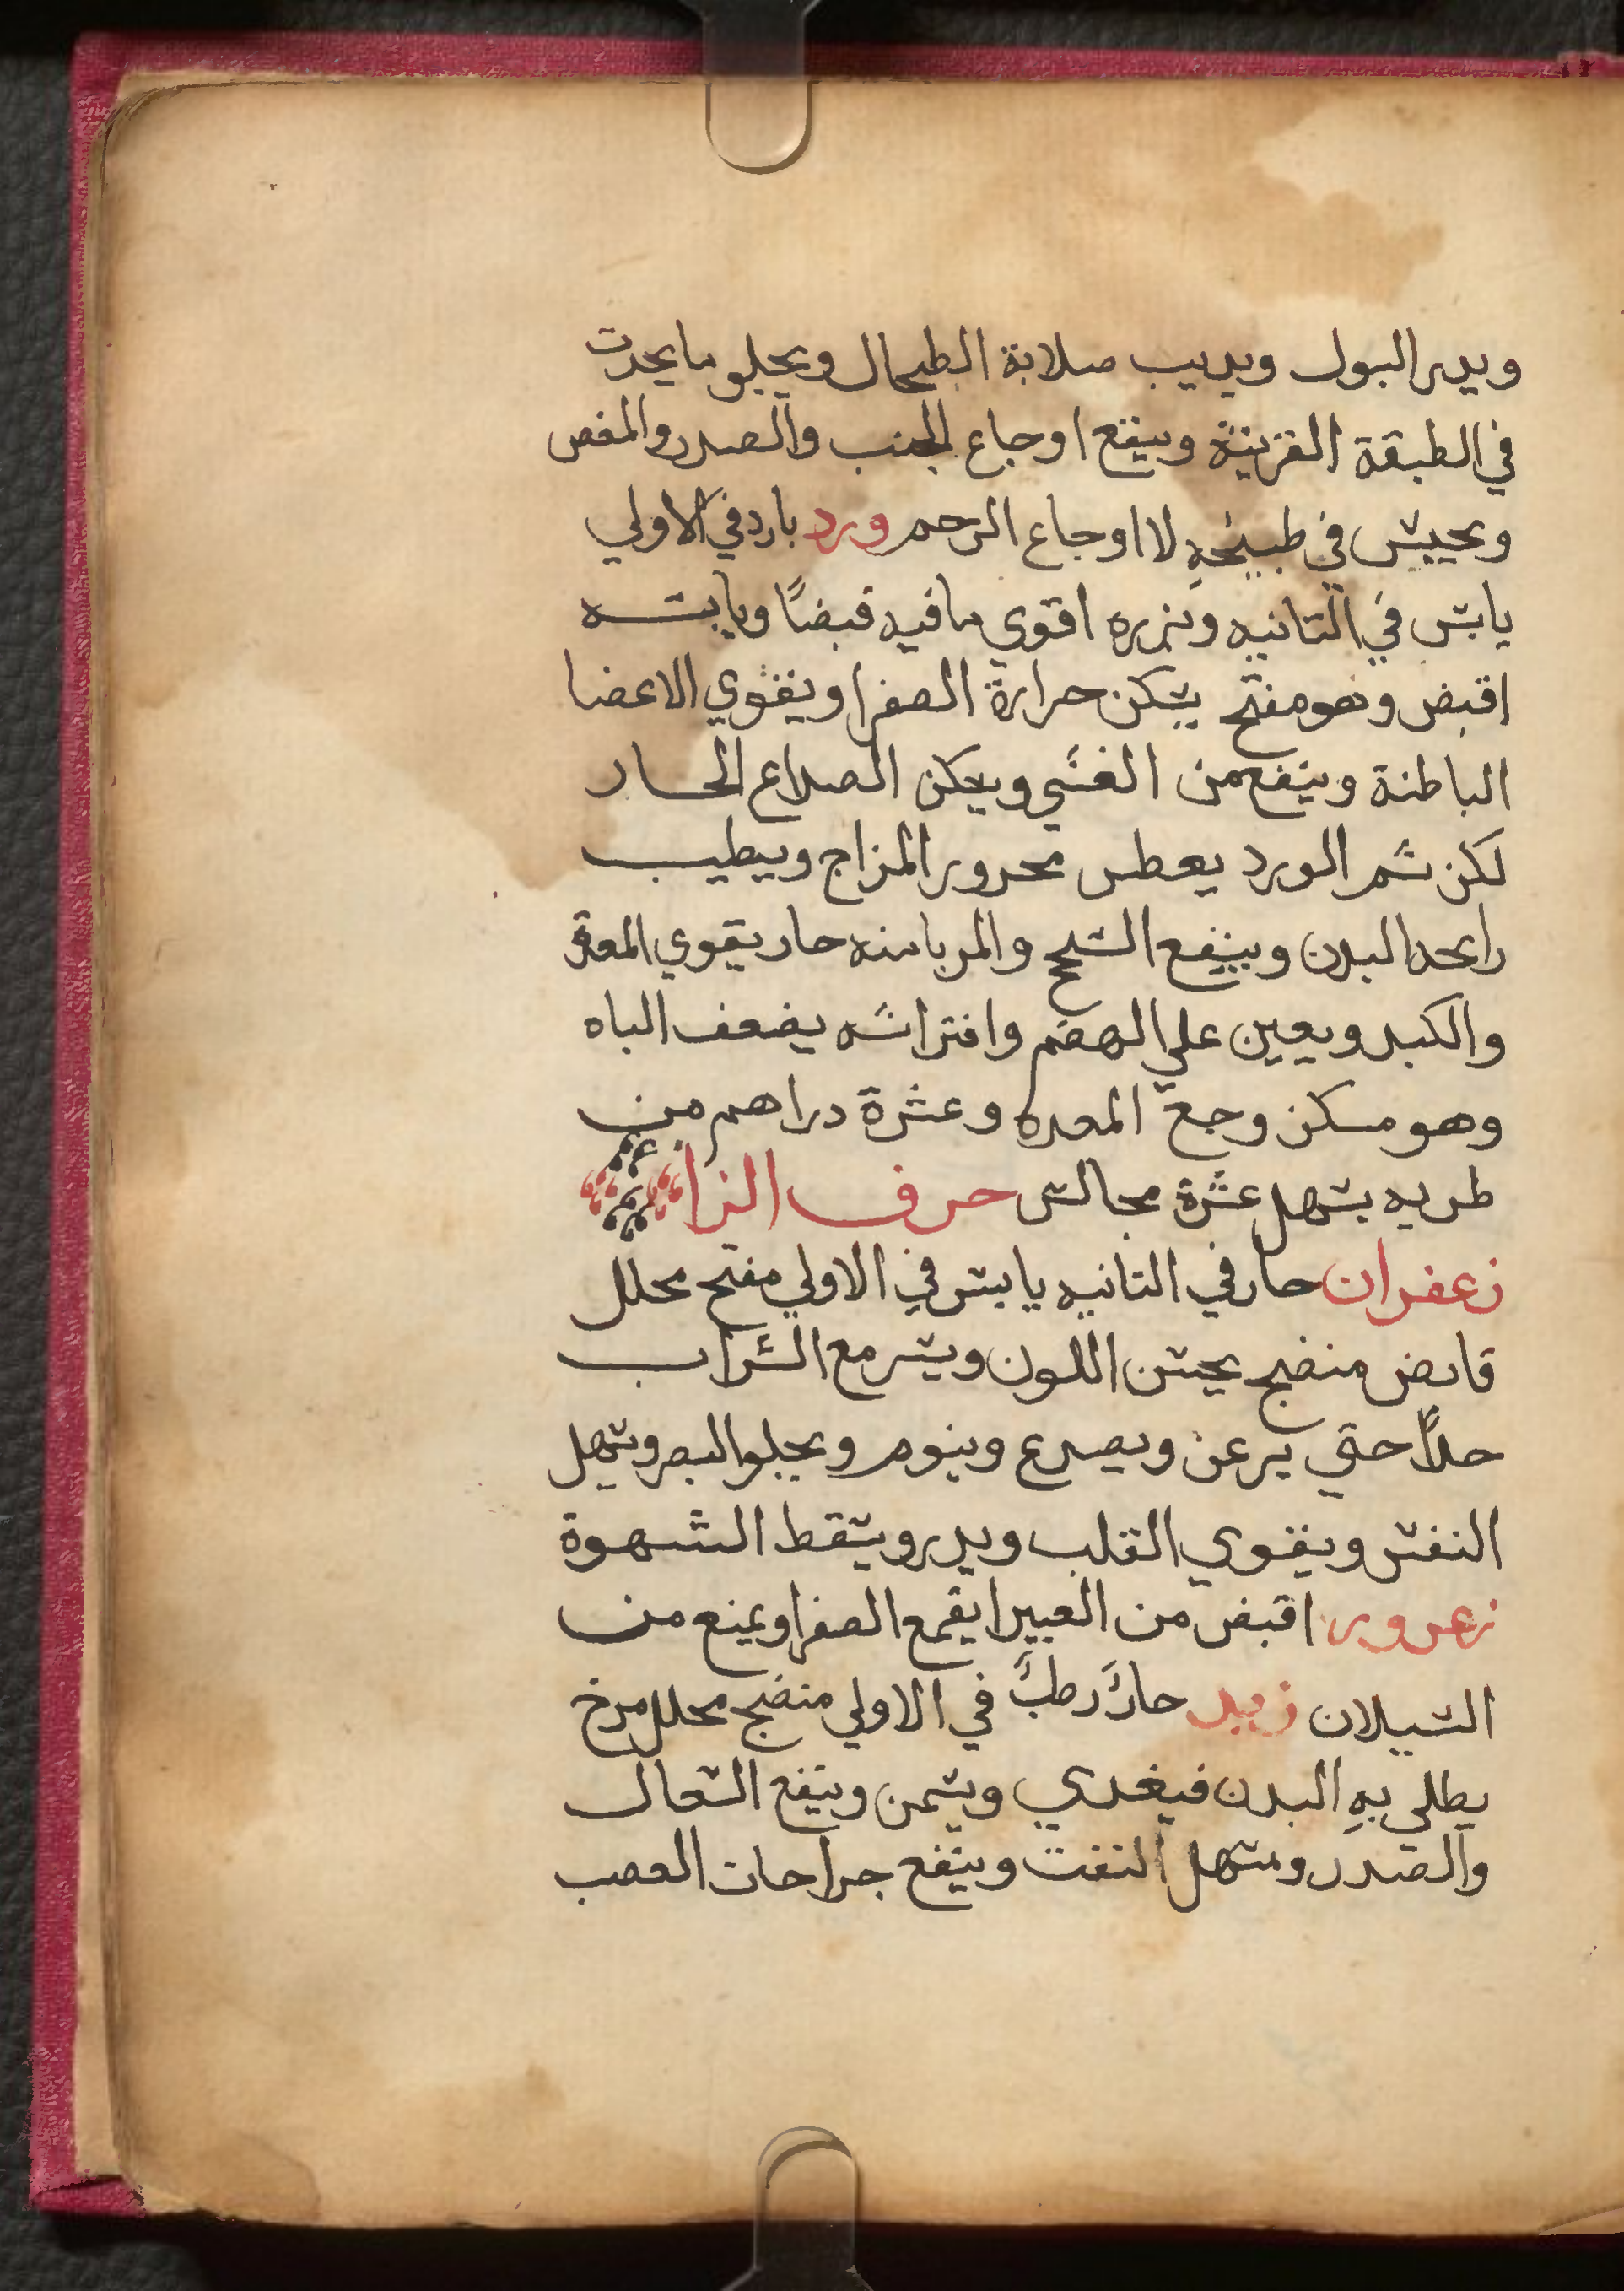 ويدر البول ويديب صلابة الطحال ويجلو ما يحدث
في الطبقة القرنية وينفع اوجاع الجنب والصدر والمغص
ويجلس في طبيخهِ لااوجاع الرحم ورد بارد في الاولي
يابس في التانيه وبزره اقوي ما فيه قبضًا ويابسه
اقبض وهو مفتح يسكن حرارة الصفرا ويقوي الاعضا
الباطنة وينفع من الغشي ويسكن الصداع الحار
لكن شم الورد يعطس محرور المزاج ويطيب
رايحه البدن وينفع السحج والمربا منه حار يقوي المعدة
والكبد ويعين علي الهضم وافتراشه يضعف الباه
وهو مسكن وجع المعده وعشرة دراهم من
طريه يسهل عشرة مجالس حرف الزا
زعفران حار في التانيه يابس في الاولي مفتح محلل
قابض منضج يحسن اللون ويسر مع الشراب
جدًا حتي يرعن ويصدع وينوم ويجلو البصر ويسهل
النفس ويقوي القلب ويدر ويسقط الشهوة
زعرور اقبض من الغبيرا يقمع الصفرا ويمنع من
السيلان زبد حارٌ رطبٌ في الاولي منضج محلل مرخ
يطلي بهِ البدن فيغدي ويسمن وينفع السعال
والصدر ويسهل النفت وينفع جراحات العصب